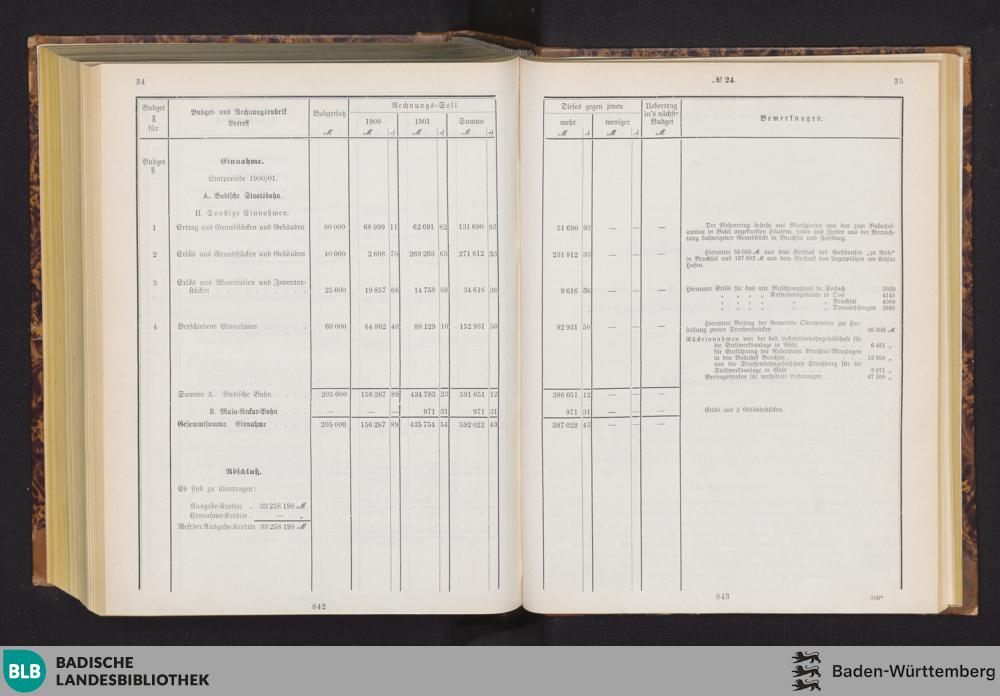 34
Budget § für
Budget- und Rechnungsrubrik Betreff
Budgetsatz
Rechnungs-Soll
1900
1901
Summe
ℳ ℳ ₰ ℳ ₰ ℳ ₰
Budget §
Einnahme.
Etatperiode 1900/01.
A. Badische Staatsbahn.
II. Sonstige Einnahmen.
1 Ertrag aus Grundstücken und Gebäuden 80 000 68 999 11 62 691 82 131 690 93
2 Erlös aus Grundstücken und Gebäuden 40 000 2 608 70 269 203 63 271 812 33
3 Erlös aus Materialien und Inventar-
stücken . . . . . . . . . . 25 000 19 857 68 14 758 68 34 616 36
4 Verschiedene Einnahmen . . . . . 60 000 64 802 40 88 129 10 152 931 50
Summe A. Badische Bahn . . . . 205 000 156 267 89 434 783 23 591 051 12
B. Main-Neckar-Bahn . . . — — — 971 31 971 31
Gesammtsumme. Einnahme . . . . 205 000 156 267 89 435 754 54 592 022 43
Abschluß.
Es sind zu übertragen:
Ausgabe-Kredite . 33 258 198 ℳ
Einnahme-Kredite . — „
Rest der Ausgabe-Kredite 33 258 198 ℳ
842
№ 24.
35
Dieses gegen jenen
mehr
weniger
Uebertrag in's nächste Budget
Bemerkungen.
ℳ ₰ ℳ ₰ ℳ
51 690 93 — — —
Der Mehrertrag besteht aus Miethzinsen aus den zum Bahnhof-
umbau in Basel angekauften Häusern, sowie aus Zinsen aus der Verpach-
tung bahneigener Grundstücke in Bruchsal und Freiburg.
231 812 33 — — —
Hierunter 55 650 ℳ aus dem Verkauf des Gasthauses „zu Rose“
in Bruchsal und 197 892 ℳ aus dem Verkauf von Lagerplätzen am Kehler
Hafen.
9 616 36 — — —
Hierunter Erlös für das alte Maschinenhaus in Seckach 2020
„ „ „ „ Aufnahmsgebäude in Oos 4145
„ „ „ „ „ „ Bruchsal 4000
„ „ „ „ „ „ Donaueschingen 2895
92 931 50 — — —
Hierunter Beitrag der Gemeinde Oberwinden zur Her-
stellung zweier Straßenbrücken . . . . . . . . . 26 500 ℳ
Rückeinnahmen von der bad. Lokaleisenbahngesellschaft für
die Stellwerksanlage in Bühl . . . . . . . 6 481 „
für Einführung der Nebenbahn Bruchsal-Menzingen
in den Bahnhof Bruchsal . . . . . . . . 12 958 „
von der Straßenbahngesellschaft Straßburg für die
Stellwerksanlage in Bühl . . . . . . . . 3 071 „
Vertragsstrafen für verspätete Lieferungen . . . . . . 47 100 „
386 051 12 — — —
971 31 — — —
Erlös aus 2 Geländestücken.
387 022 43 — — —
843
106*
BLB
BADISCHE
LANDESBIBLIOTHEK
Baden-Württemberg